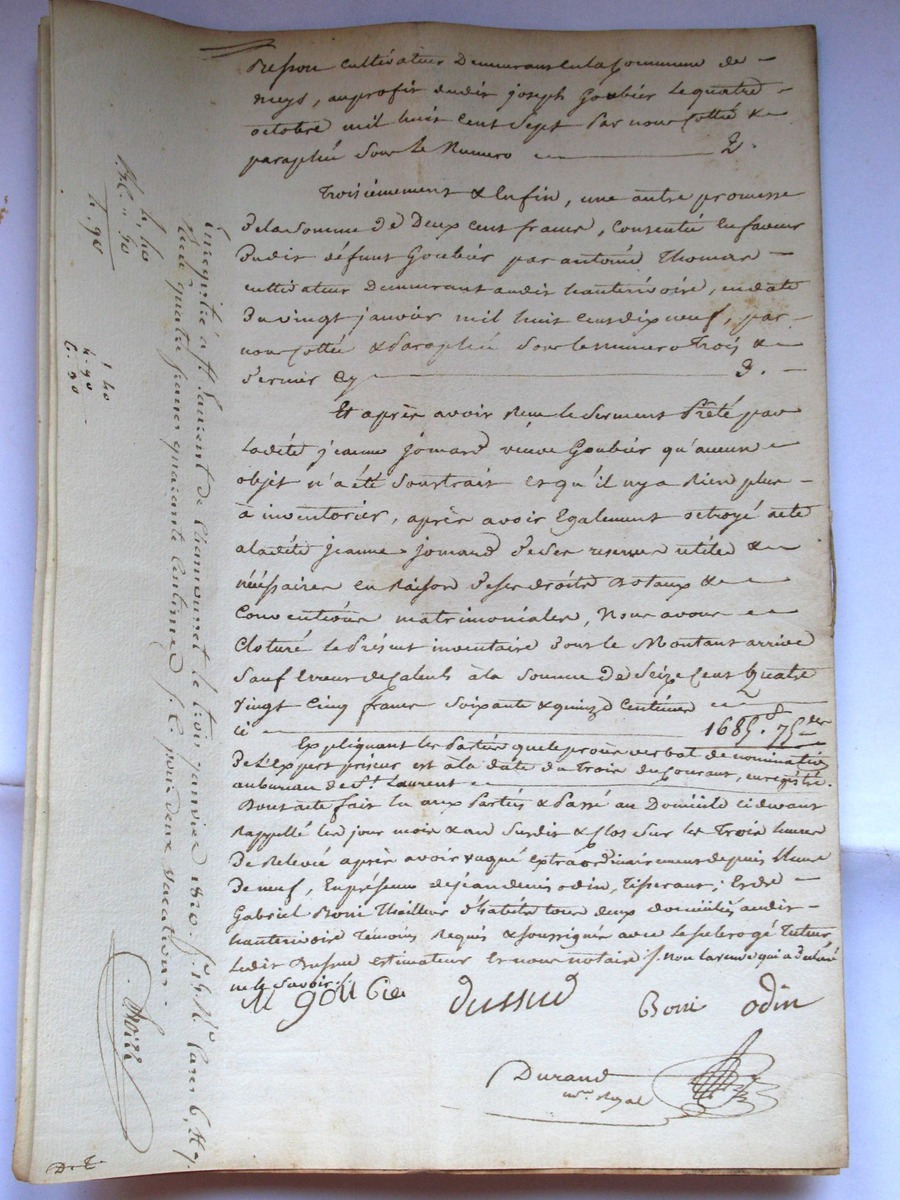 cultivateur Demeurant en la Commune de
meys, au profit dudit joseph Goubier le quatre
octobre mil huit Cent Sept par nous Cotté &
paraphé Sous le Numero 2.
Troisiemement & Enfin, une autre promesse
De la Somme De Deux cent francs, Consentie En faveur
Dudit défunt Goubier par antoine Thomas
cultivateur Demeurant audit hauterivoire, en date
Du vingt janvier mil huit Cent dix neuf, par
nous Cottée & Paraphée Sous le numero Trois &
Dernier Cy 3.
Et après avoir Reçu le Serment Prêté par
Ladite jeanne jomard veuve Goubier qu'aucun
objet n'a été Soustrait et qu'il n'y a Rien plus
à inventorier, après avoir Egalement octroyé acte
a ladite jeanne jomard De Ses reserves utiles &
nécéssaires en Raison De Ses droits Dotaux &
Conventions matrimoniales, Nous avons
Cloturé le Présent inventaire Dont le Montant arrive
Sauf Erreur de Calculs à la Somme De Seize Cent Quatre
Vingt Cinq francs Soixante & quinze Centimes
Ci 1685.f 75
Expliquant les Parties que le procès verbal de nomination
De L'Expert priseur est à la date du Trois du Courant, enregistré
au bureau de St. Laurent
Dont acte fait lu aux Parties & Passé au Domicile ci devant
Rappellé les jour mois & an Susdit & Clos Sur les Trois heures
De Relevée après avoir vaqué Extraordinairement depuis L'heure
De neuf, En présence de jean denis odin, Tisserant, Et de
Gabriel Boni Thailleur d'habits tous deux domiciliés audit
hauterivoire Témoins Requis & Soussignés avec le Subrogé Tuteur
Ledit Dussud Estimateur Et nous notaire non la veuve qui a Déclaré
ne le Savoir
M goubier dussud Boni odin
Durand
nre Royal
Enregistré à St Laurent de Chamousset le trois janvier 1820. fo
Reçu quatre francs quarante Centimes pour deux vacations.
4. 40
4. 90
1 40
4. 90